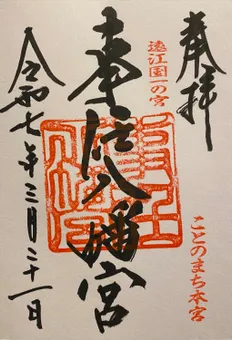 奉拝
遠江国一の宮
ことのまち本宮
事任八幡宮
令和七年三月二十一日